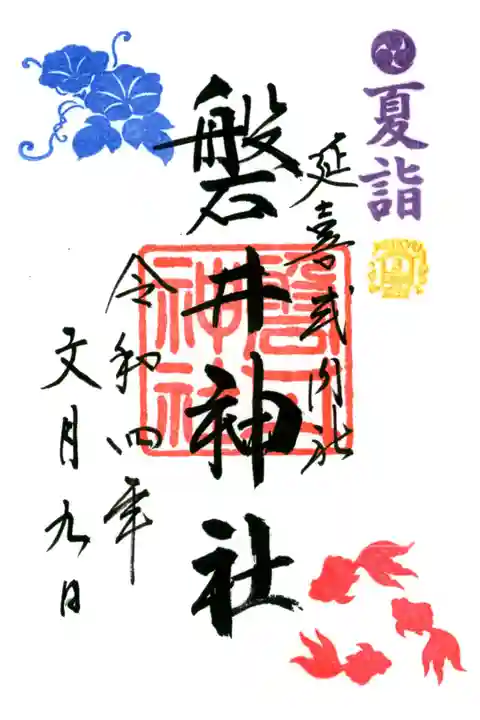 夏詣
延喜式内社
磐井神社
磐井神社
令和四年
文月九日